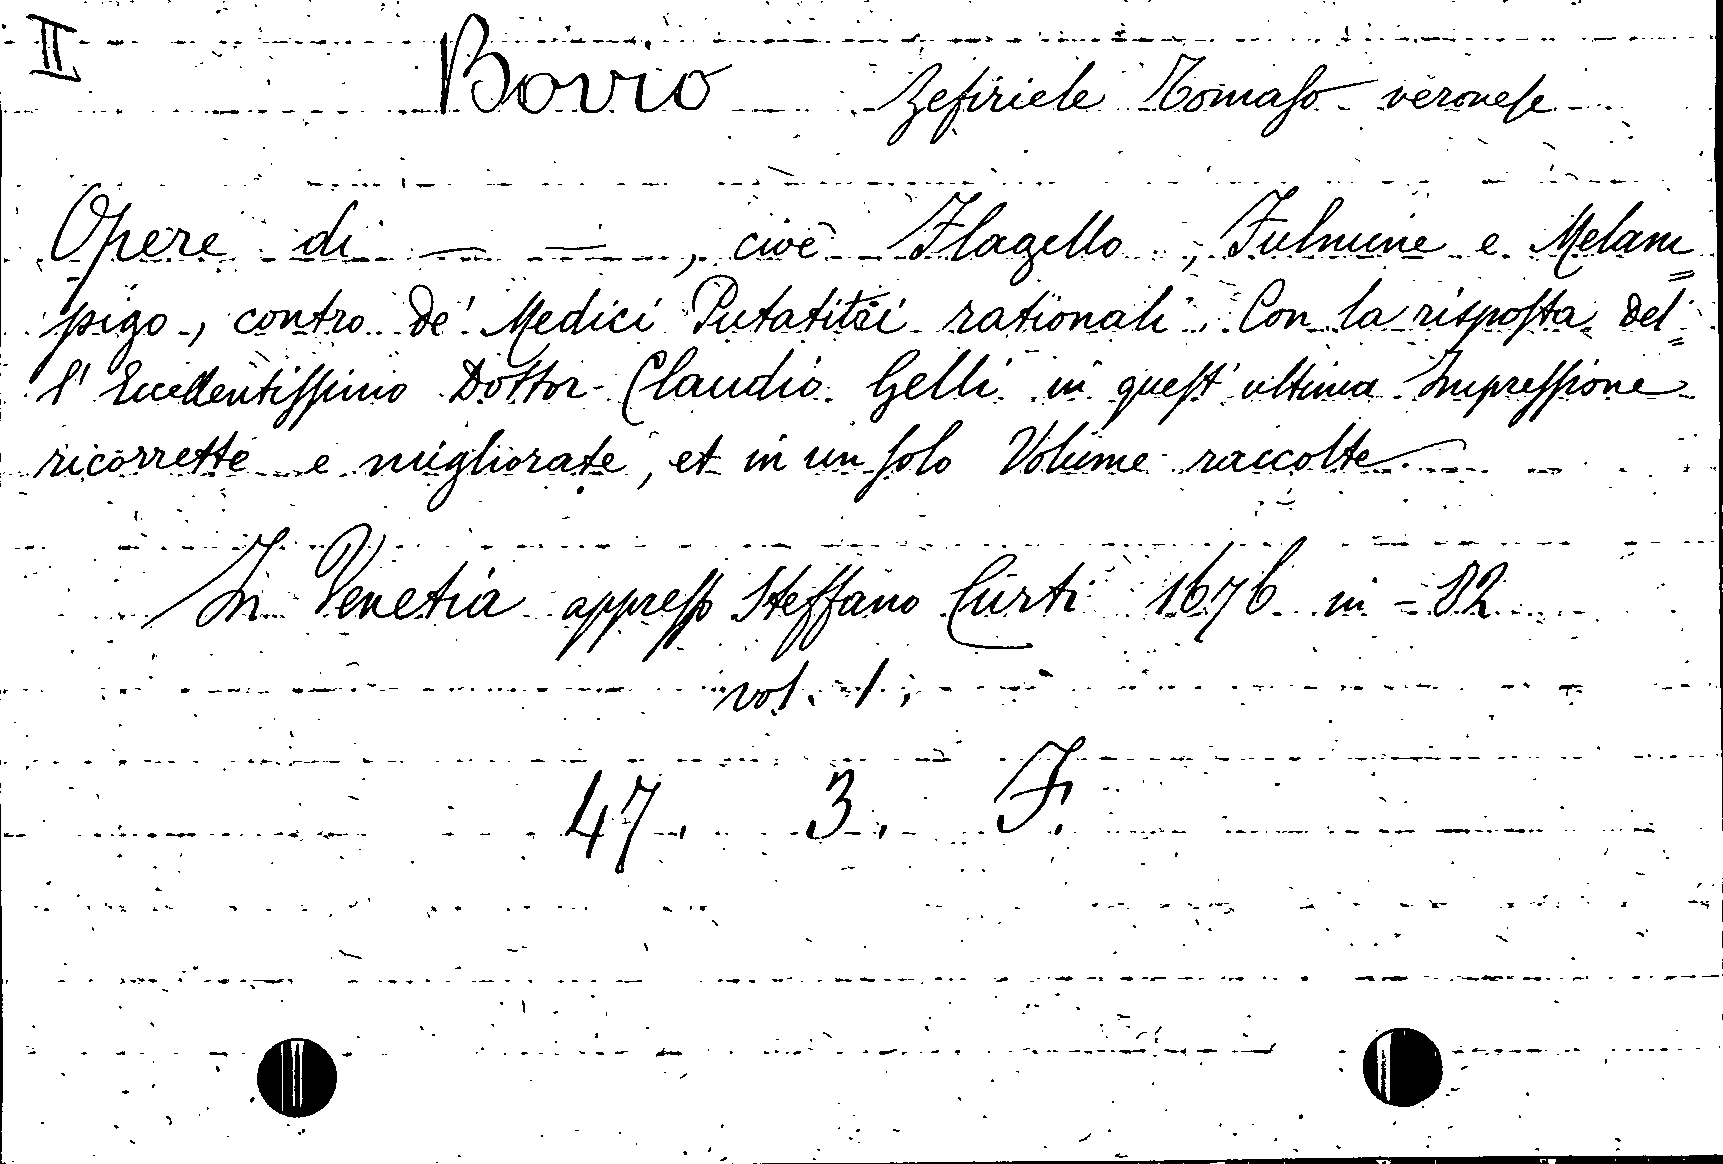 II
Bovio Zefiriele Tomaſo veroneſe
Opere di — —, cioè Flagello, Fulmine e Melam=
pigo, contro de' Medici Putatitii rationali. Con la riſpoſta del=
l' Eccellentiſſimo Dottor Claudio Gelli in queſt' ultima Impreſſione
ricorrette e migliorate, et in un ſolo Volume raccolte
In Venetia appreſſo Steffano Curti 1676 in - 82
vol. 1.
47. 3. F.